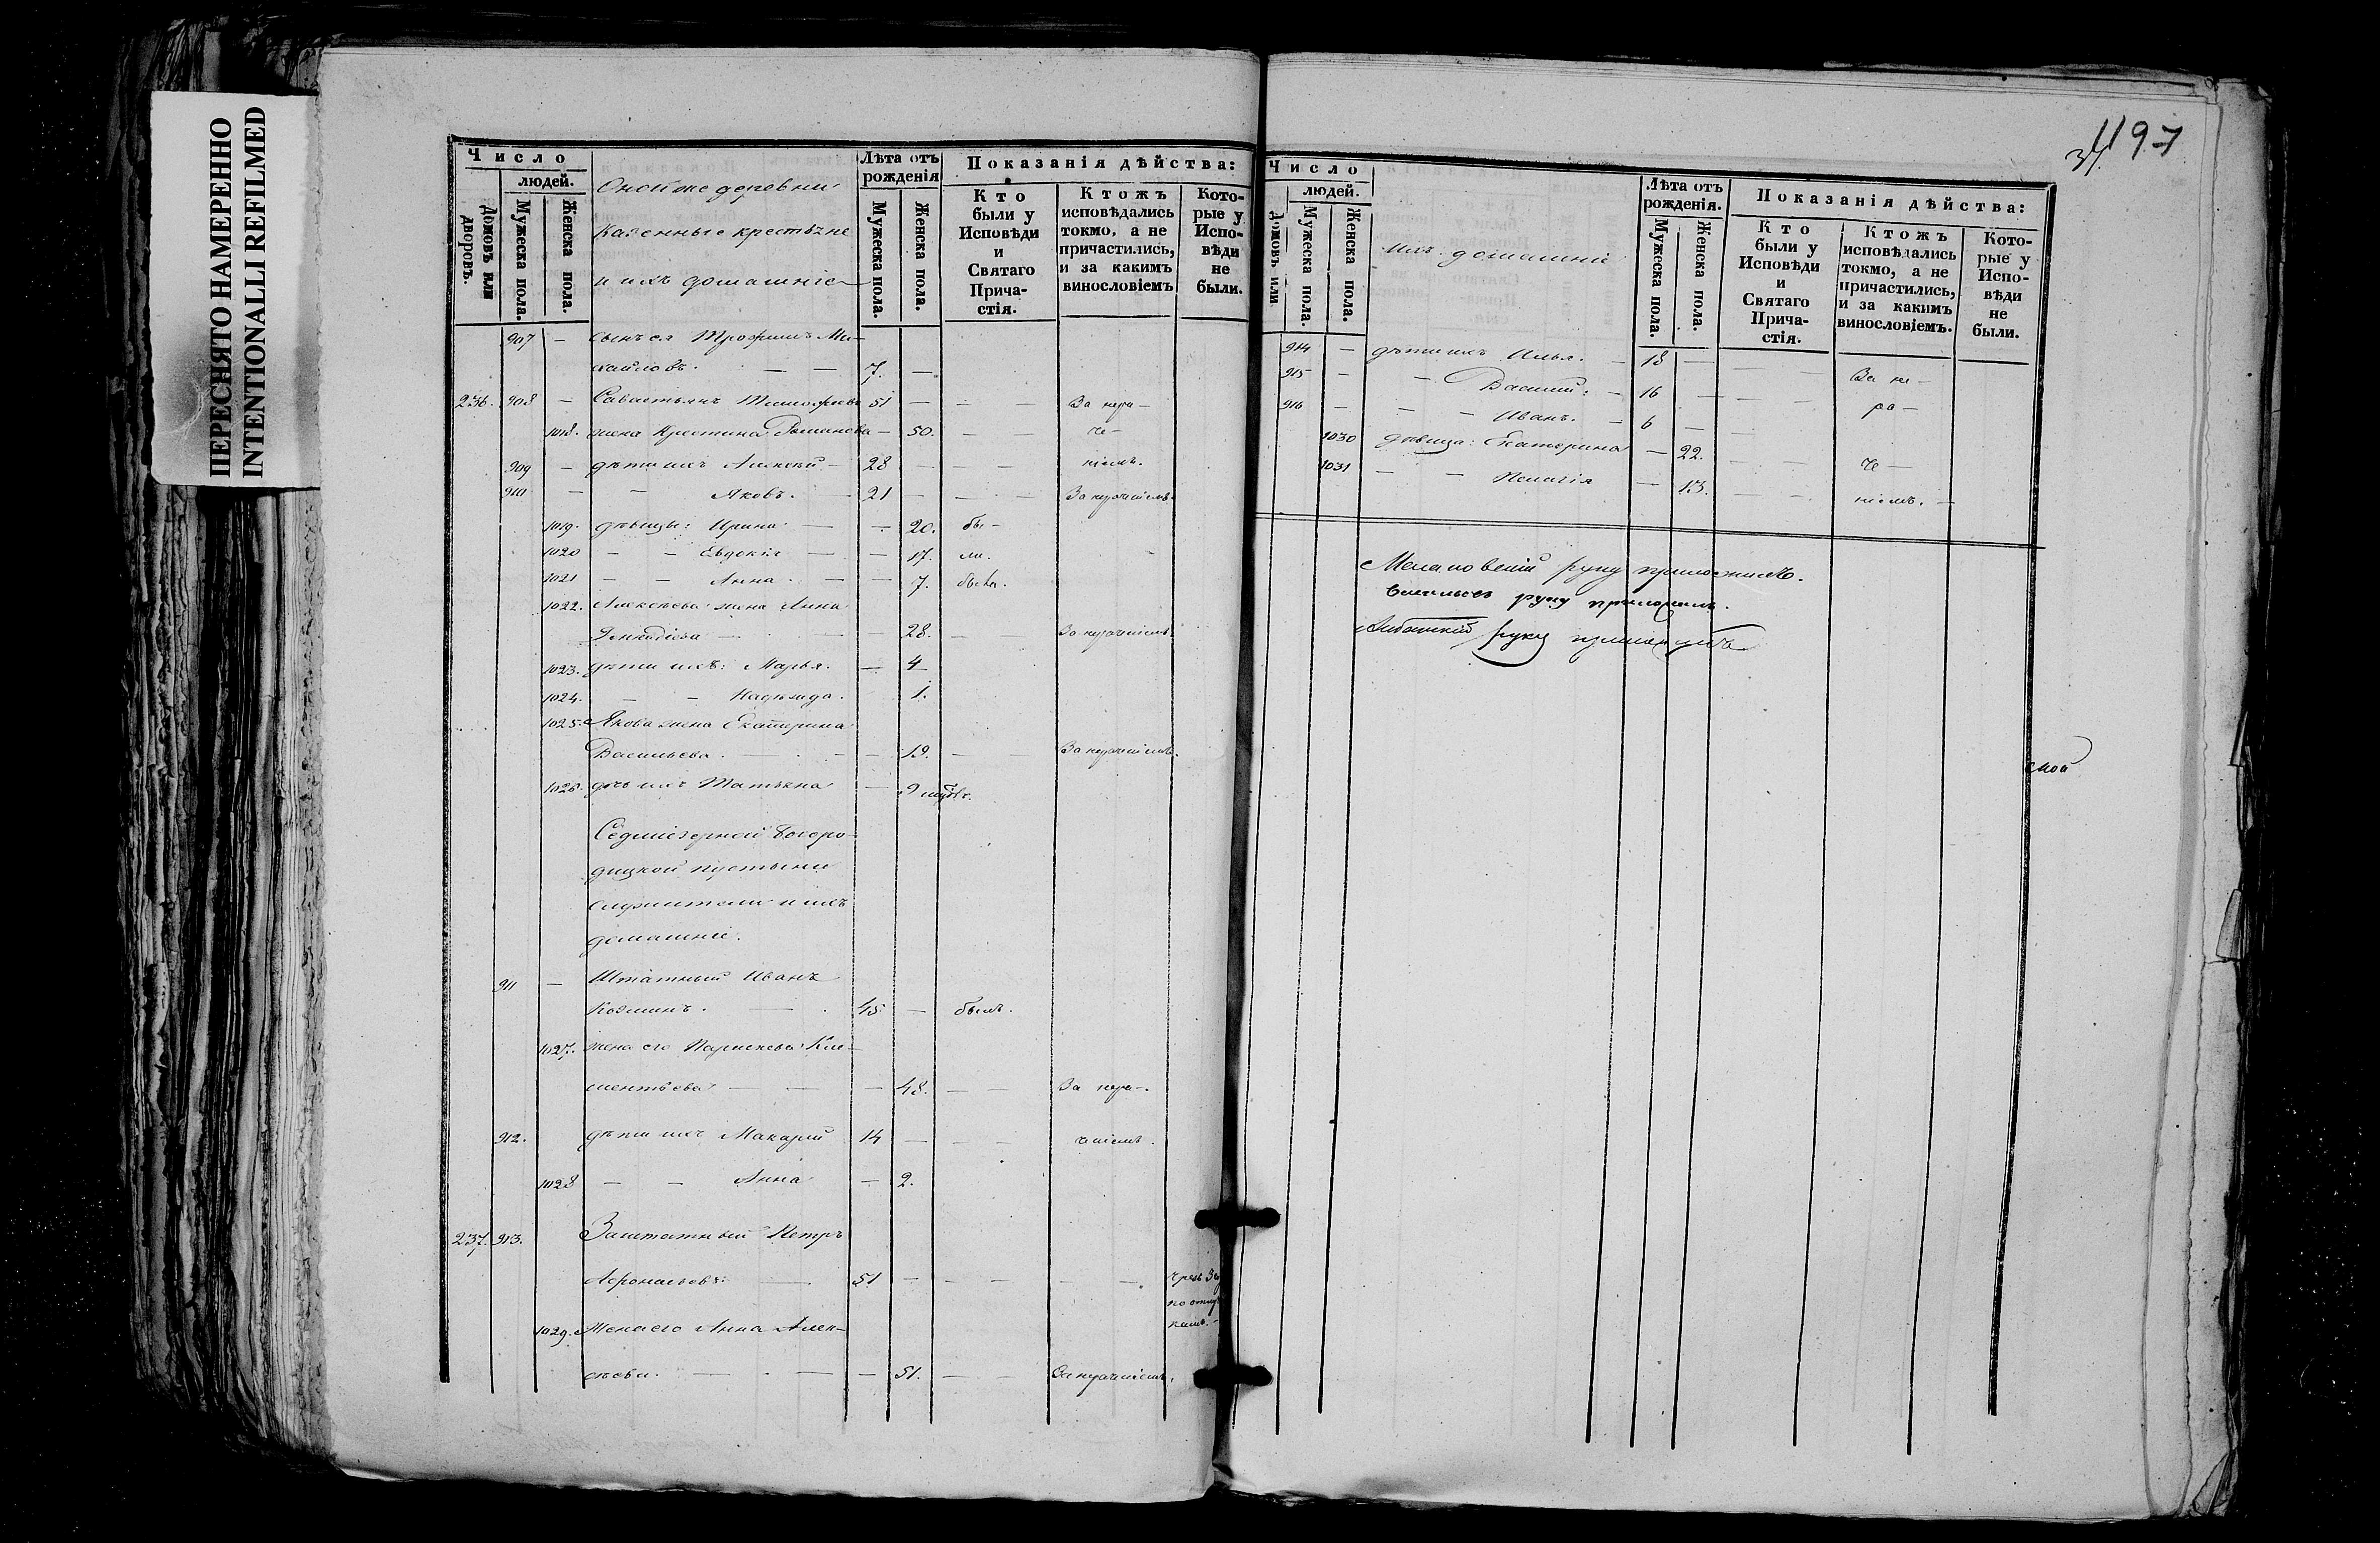 ПЕРЕСНЯТО НАМЕРЕННО
INTENTIONALLI REFILMED
Число
людей.
Домовъ или дворовъ.
Мужеска пола.
Женска пола.
Оной же деревни
казенные крестьяне
и ихъ домашніе
Лѣта отъ рожденія
Мужеска пола.
Женска пола.
Показанія дѣйства:
Кто были у Исповѣди и Святаго Причастія.
Ктожъ исповѣдались токмо, а не причастились, и за какимъ винословіемъ
Которые у Исповѣди не были.
907 — сынъ ея Трофимъ Ми-
хайловъ. — — 7. —
236. 908 — Савастьянъ Тимофѣевъ 51 — — — За нера-
1018. жена Кристина Романова — 50. — — че-
909 — дѣти ихъ Алексѣй — 28 — — ніемъ.
910 — — Яковъ. — 21 — — — За нераченіемъ.
1019. дѣвицы: Ирина — — 20. бы-
1020 — — Евдокія — — 17. ли.
1021 — — Анна. — — 7. была.
1022. Алексѣева жена Анна
— — 28. — — За нераченіемъ.
1023. дѣти ихъ: Марья. — 4
1024. — — Надежда. 1.
1025. Якова жена Екатерина
Васильева. — — — 19. — — За нераченіемъ.
1026. дочь ихъ Татьяна — 9
Седміезерной Богоро-
дицкой пустыни
служители и ихъ
домашніе.
911 — Штатный Иванъ
Козминъ. — 45 — былъ.
1027. жена его Параскева Кле-
ментьева — — — 48. — — За нера-.
912. дѣти ихъ Макарій 14 — — — ченіемъ.
1028 — — Анна — 2.
237. 913. Заштатный Петръ
Афонасьевъ: — 51 — — — —
1029. Жена его Анна Алек-
сѣева. — — — 51. — — За нераченіемъ.
34
1197
Число
людей.
Домовъ или
Мужеска пола.
Женска пола.
Ихъ домашніе
Лѣта отъ рожденія.
Мужеска пола.
Женска пола.
Показанія дѣйства:
Кто были у Исповѣди и Святаго Причастія.
Ктожъ исповѣдались токмо, а не причастились, и за какимъ винословіемъ.
Которые у Исповѣди не были.
914 — дѣти ихъ Илья. — 18 — — — За не-
915 — — Василій. — 16 — — — ра-
916 — — — Иванъ. — 6 — —
1030 дѣвица: Екатерина — 22. — — че —
1031 — — Пелагія — 13. — — ніемъ. —
руку приложилъ.
Васильевъ руку приложилъ.
руку приложилъ